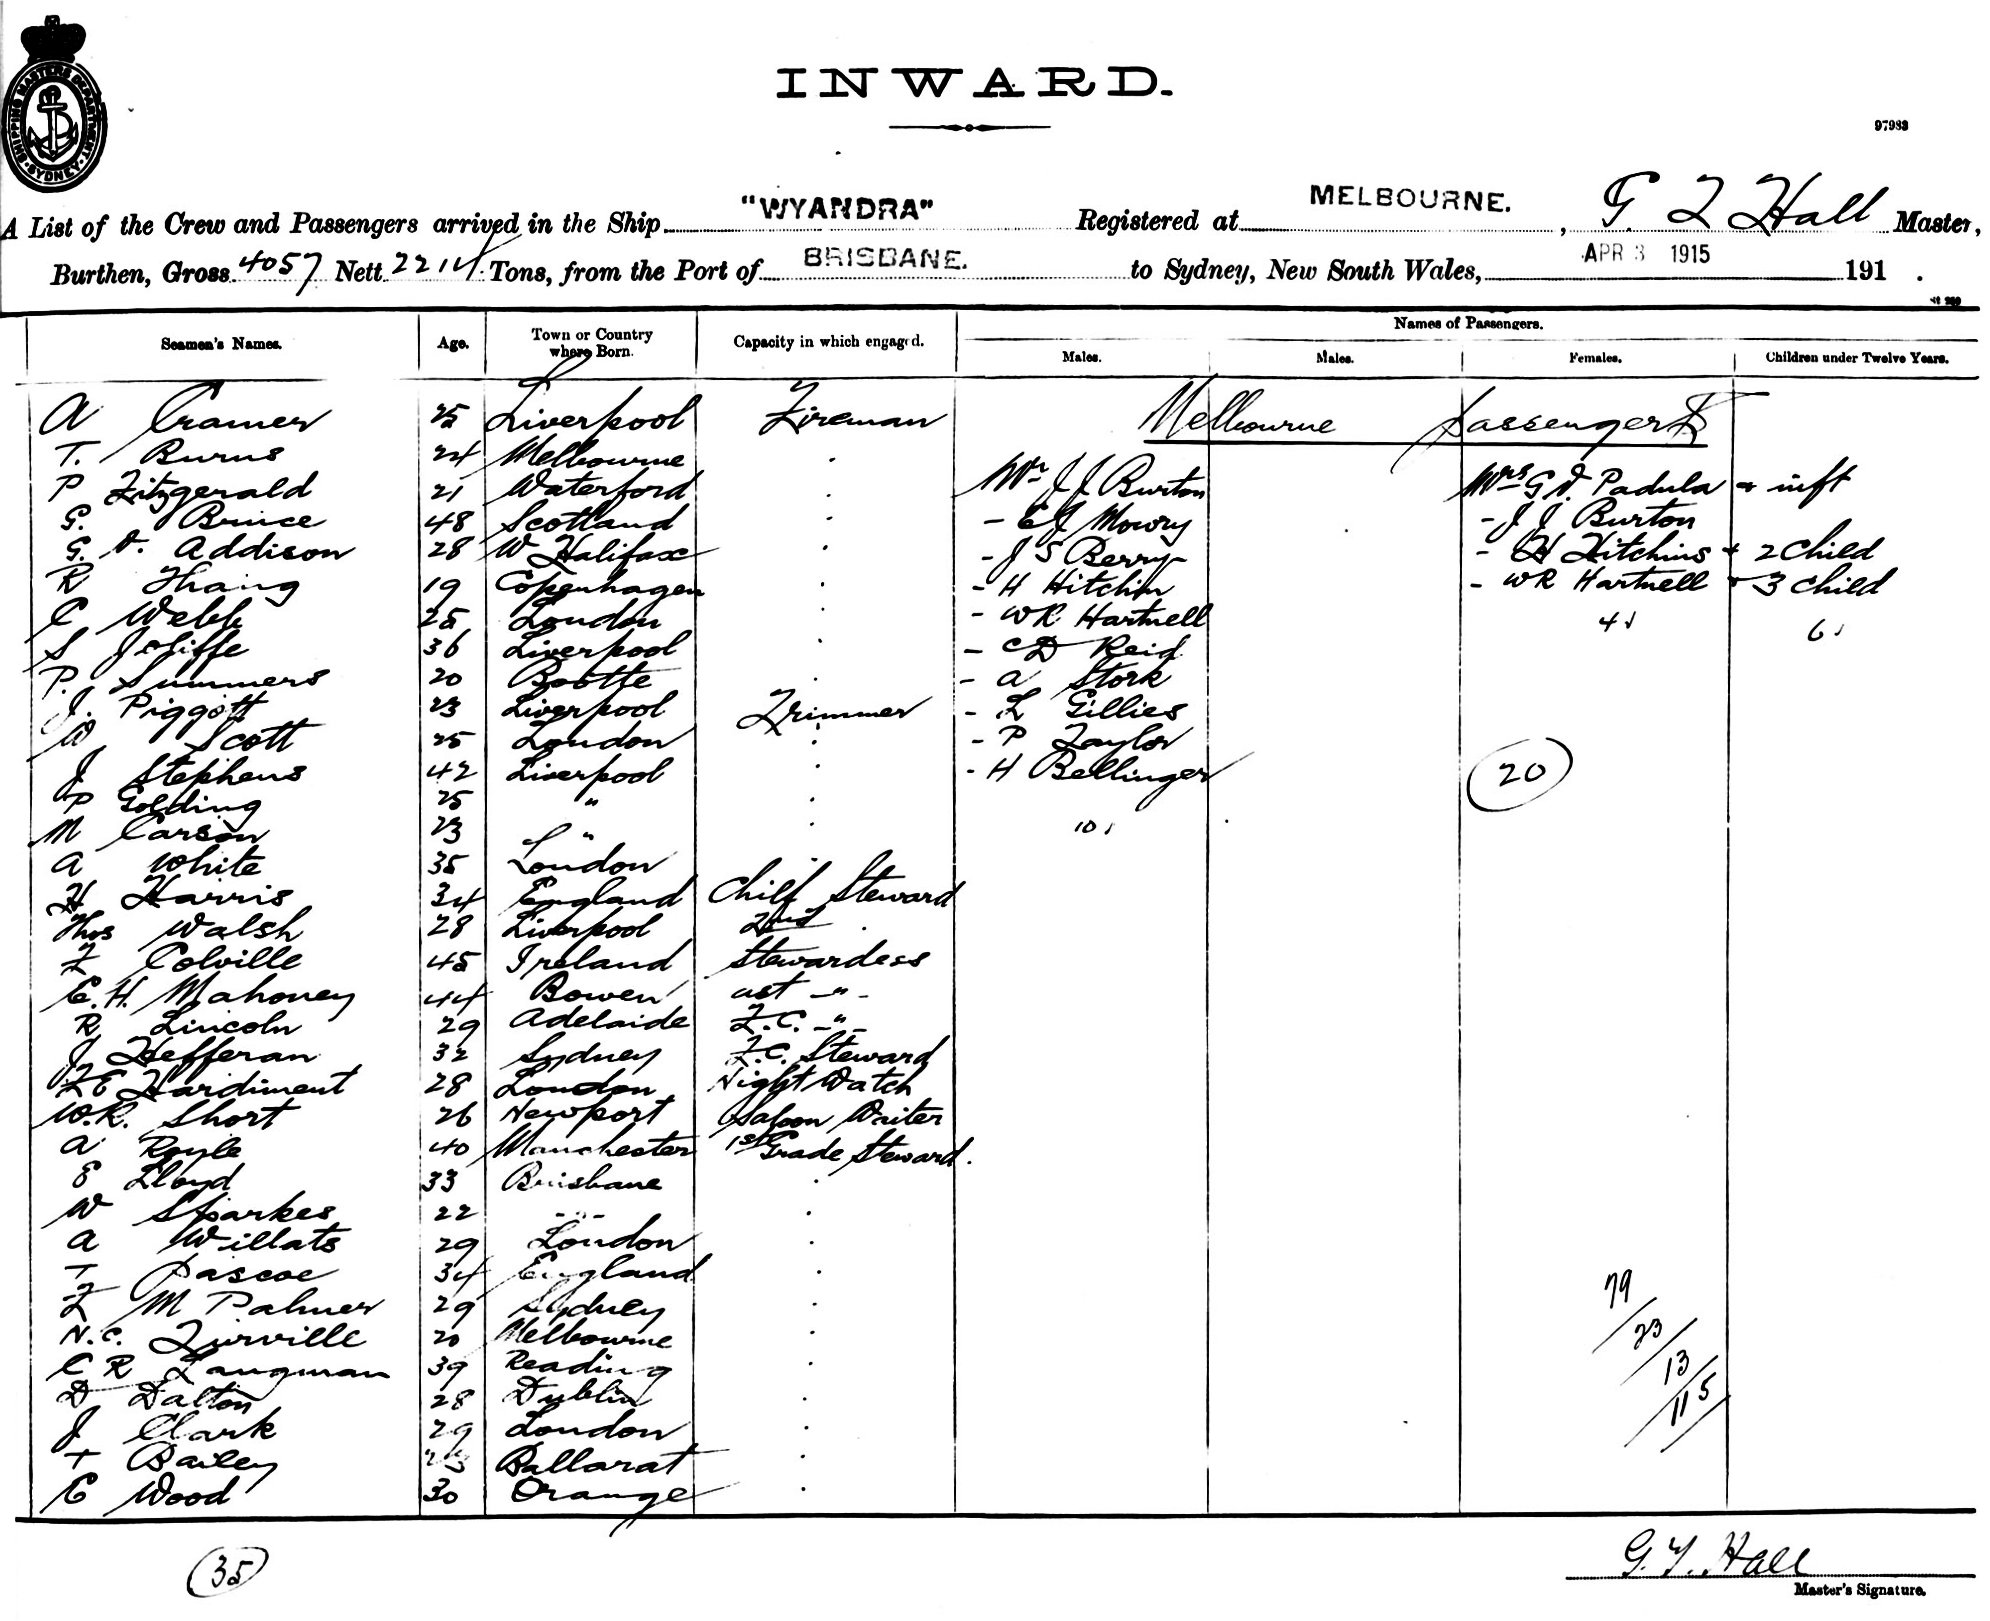 SHIPPING MASTERS DEPARTMENT
SYDNEY
INWARD.
97983
A List of the Crew and Passengers arrived in the Ship "WYANDRA" Registered at MELBOURNE. , G. T Hall Master,
Burthen, Gross 4057 Nett 2214 Tons, from the Port of BRISBANE. to Sydney, New South Wales, APR 3 1915 191 .
Names of Passengers.
Seamen's Names. Age. Town or Country where Born. Capacity in which engaged. Males. Males. Females. Children under Twelve Years.
A Cramer 25 Liverpool Fireman Melbourne Passengers
T. Burns 24 Melbourne
P Fitzgerald 21 Waterford Mr J J Burton Mrs G V. Padula + inft
G. Bruce 48 Scotland - E J Mowry - J J Burton
G. V. Addison 28 W Halifax - J S Berry - H Hitchins + 2 Child
R Thang 19 Copenhagen - H Hitchin - WR Hartnell + 3 Child
C Webb 25 London - WR Hartnell 4 6
S Joliffe 36 Liverpool - CD Reid
P. Summers 20 Bootte - A Stork
J. Piggott 23 Liverpool Trimmer - L Gillies
W Scott 25 London - P Taylor
J Stephens 42 Liverpool - H Bellinger 20
P Golding 25 "
M Carson 23 " 10
A White 35 London
H Harris 34 England Chief Steward
Thos Walsh 28 Liverpool 2nd
F Colville 45 Ireland Stewardess
E. H. Mahoney 44 Bowen ast -"-
R Lincoln 29 Adelaide F.C. -"-
J Hefferan 32 Sydney F.C. Steward
FE Hardiment 28 London Night Watch
W.R. Short 26 Newport Saloon Waiter
A Royle 40 Manchester 1st Grade Steward.
E Lloyd 33 Brisbane
W Sparkes 22 -"-
A Willats 29 London
T Pascoe 34 England
F M Palmer 29 Sydney 79
N.C. Turville 20 Melbourne 23
C R Langman 39 Reading 13
D Dalton 28 Dublin 115
J Clark 29 London
T Bailey Ballarat
E Wood 30 Orange
35
G. T. Hall
Master's Signature.